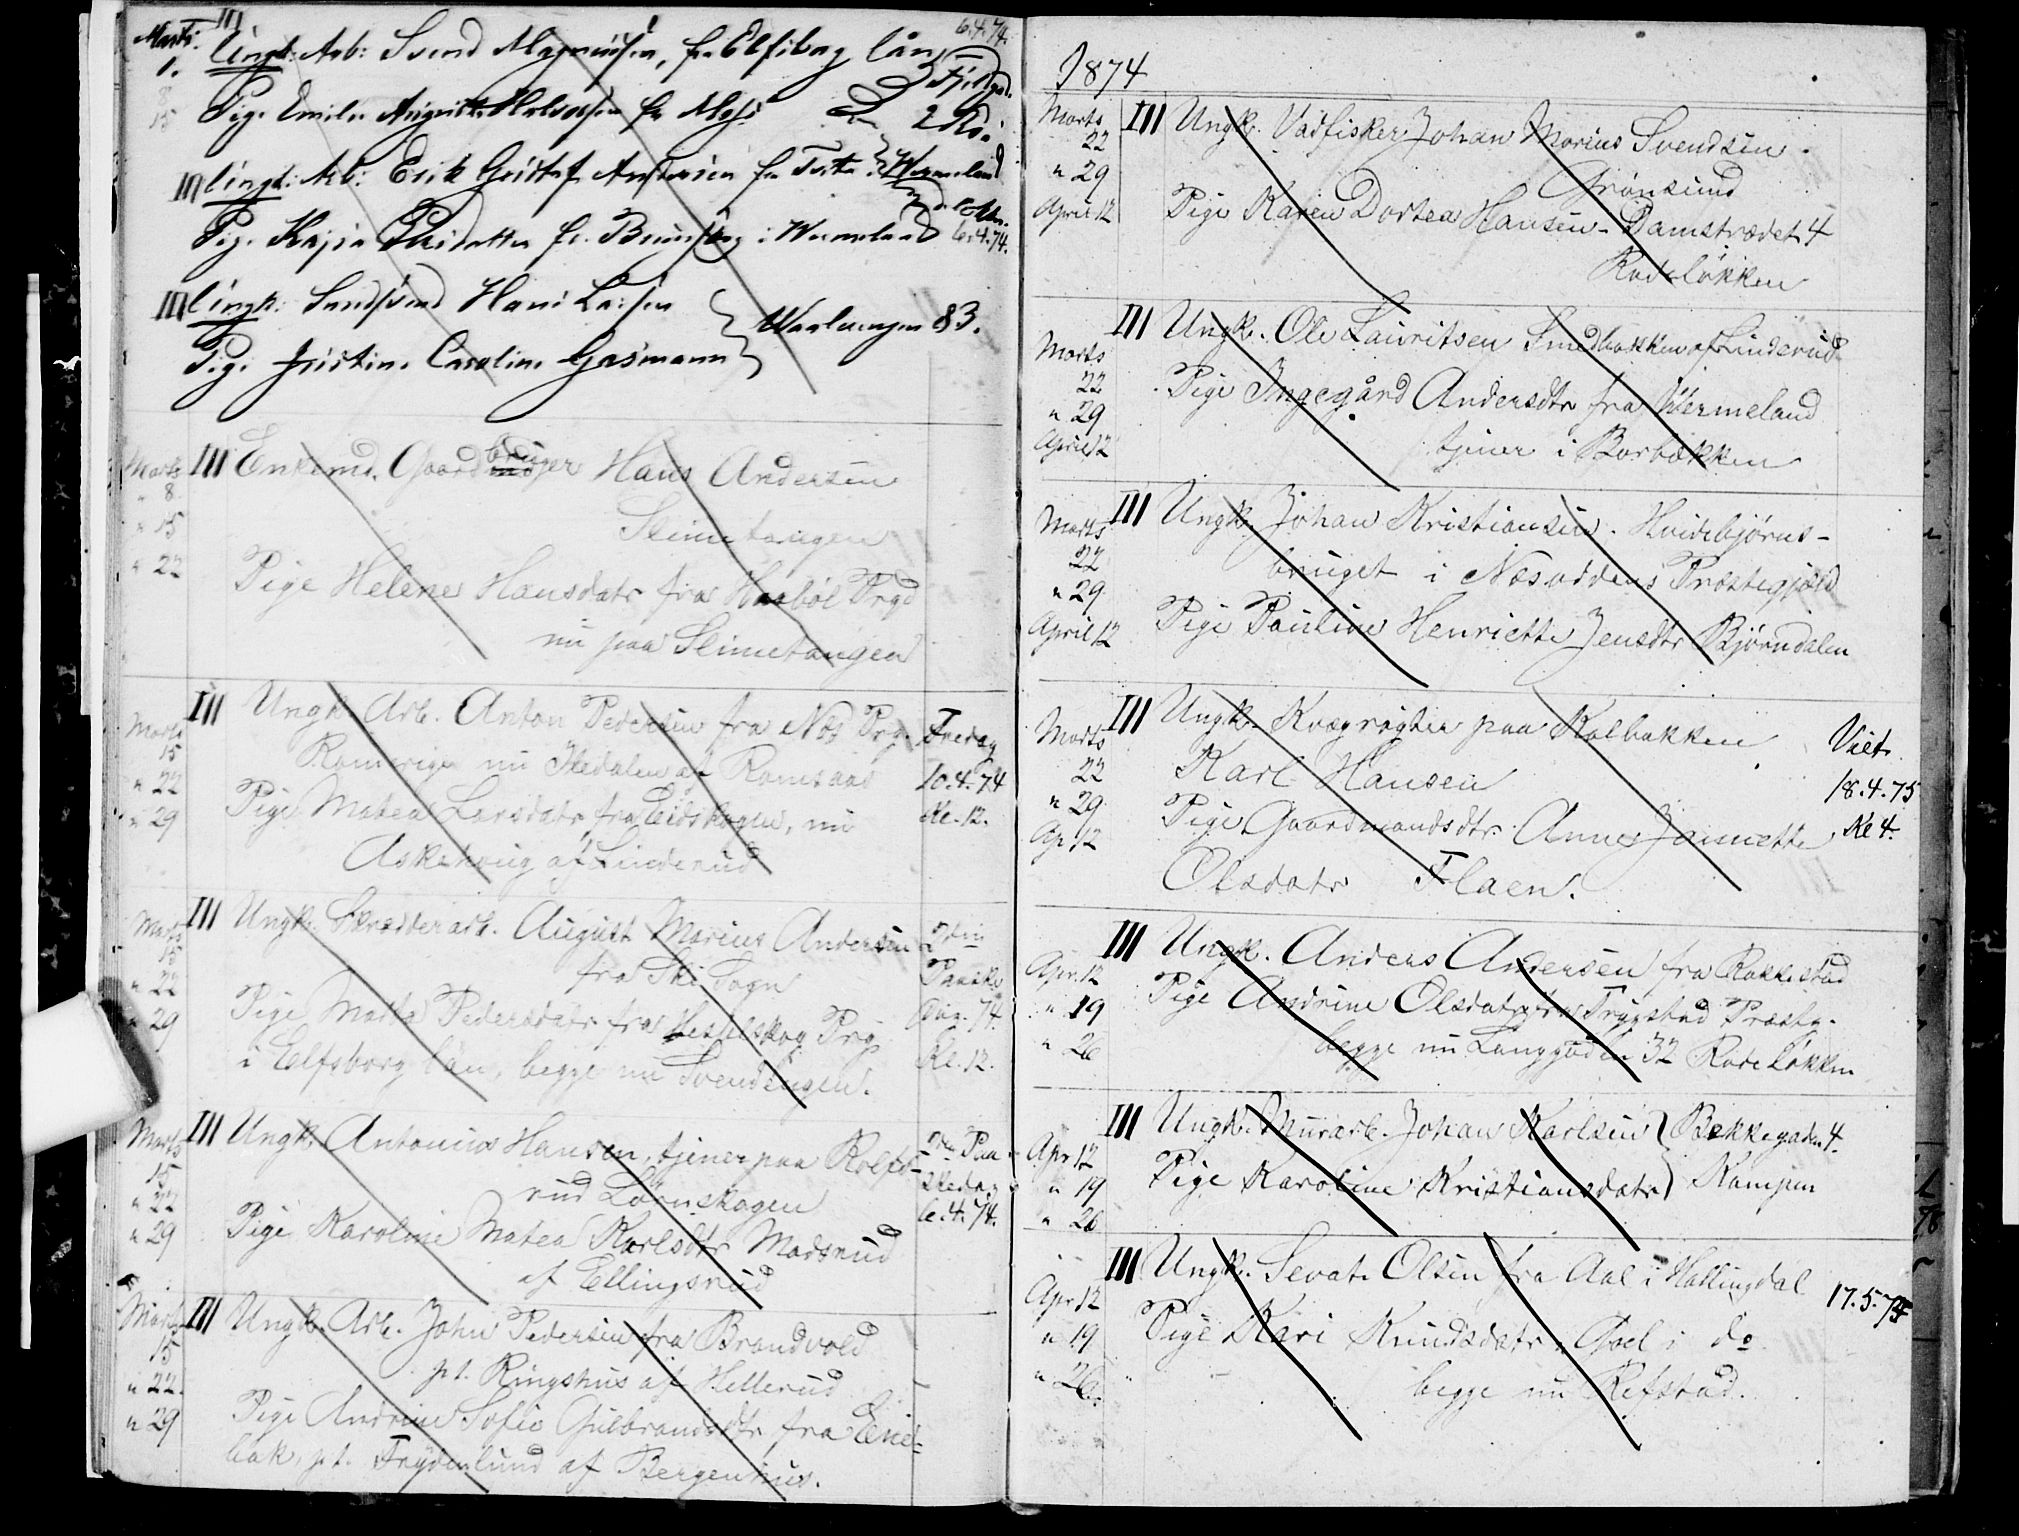 Marts III Ungk: Arb: Svend Magnussen, fra Elfsborg län 6.4.74.
1.
8
15 Pige Emilie Augusta Halvorsen fr Moss
III Ungk: Arb: Erik Gustaf Andersen fra
Pige Kajsa fr. i Wermeland 6.4.74.
III Ungk: Hans Larsen
Vaalerengen 83.
Pige Kristine Caroline Gasmann
Marts III Enkemd. Gaardbruger Hans Andersen
" 8
" 15 Slimetangen
" 22 Pige Helene Hansdatr fra Haabøl Prgd
nu paa Slimetangen
Marts III Ungk. Arb. Anton Pedersen fra Næs Prg. Fredag
15 Romerige nu Stedalen af Romsaas 10.4.74
" 22 Pige Matea Larsdatr fra Eidskogen, nu Kl. 12.
" 29 Askehoug af Linderud
Marts III Ungk. Skrædderarb. August Marius Andersen 2den
15 fra Ski Sogn Paaske
" 22 Pige Matta Pedersdatr fra Hesselskog Prg. dag. 74
" 29 i Elfsborg län, begge nu Svendengen. Kl. 12.
Marts III Ungk. Antonius Hansen, tjener paa Rolfs- 2den Paa-
15 rud Lørenskogen skedag
" 22 Pige Karoline Matea Karlsdtr Madsrud 6.4.74.
" 29 af Ellingsrud
Marts III Ungk. Arb. John Pedersen fra Brandvold
15 pt. Ringshus af Hellerud
" 22. Pige Andrine Sofie Gulbrandsdtr fra Ene-
" 29 bak, pt. Frydenlund af Bergenhus.
1874
Marts III Ungk. Vadfisker Johan Marius Svendsen.
22 Grønsund
" 29 Pige Karen Dortea Hansen - Damstrædet 4
April 12 Rodeløkken
III Ungk. Ole Lauritsen Smedbakken af Linderud
Marts
22 Pige Ingegård Andersdtr fra Wermeland
" 29
April 12 tjener i Borbakken
Marts III Ungk. Johan Kristiansen. Hvidebjørns-
22 bruget i Næsoddens Præstegjæld
" 29
April 12 Pige Pauline Henriette Jensdtr Bjørndalen
Marts III Ungk. Kvægrøgter paa Kolbakken Viet
22 Karl Hansen 18.4.75
" 29 Pige Gaardmandsdtr. Anne Jannette Kl 4.
Ap 12 Olsdatr Flaen.
III Ungk. Anders Andersen fra Rakkestad
Apr. 12 Pige Andrine Olsdatr fra Trygstad Præstg.
" 19
" 26 begge nu Langgaden 32 Rodeløkken
III Ungk. Murarb. Johan Karlsen Bekkegaden 4.
Apr 12
" 19 Pige Karoline Kristiansdatr Kampen
" 26
III Ungk. Sevat Olsen fra Aal i Hallingdal 17.5.74
Apr 12
" 19 Pige Kari Knudsdatr, Aal i do
" 26. begge nu Refstad.